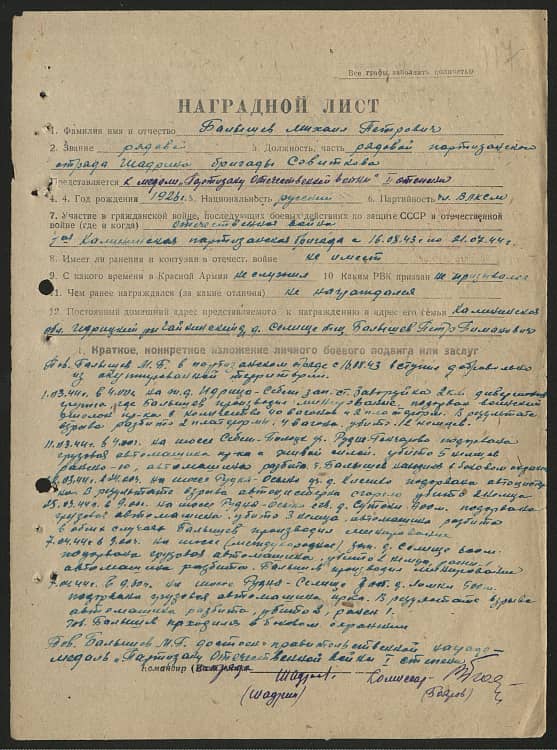 Все графы заполнять полностью
НАГРАДНОЙ ЛИСТ
1. Фамилия имя и отчество Балышев Михаил Петрович
2. Звание рядовой 3. Должность, часть рядовой партизанского
отряда Шадрина бригады
Представляется к медали „Партизану Отечественной войны" II степени
4. 4. Год рождения 1926г. 5. Национальность русский 6. Партийность чл. ВЛКСМ
7. Участие в гражданской войне, последующих боевых действиях по защите СССР и отечественной
войне (где и когда) отечественная война
Калининская партизанская бригада с 16.08.43г. по 21.07.44г.
8. Имеет ли ранения и контузии в отечест. войне не имеет
9. С какого времени в Красной Армии не служил 10 Каким РВК призван не призывался
11. Чем ранее награждался (за какие отличия) не награждался
12. Постоянный домашний адрес представляемого к награждению и адрес его семьи Калининская
обл. Идрицкий д. Селище отец Балышев Петр
1. Краткое, конкретное изложение личного боевого подвига или заслуг
Тов. Балышев М.П. в партизанском отряде с 16.08.43 вступил добровольно
из оккупированной территории.
1.03.44г. в на ж.д. Идрица-Себеж зап. ст. 2км. диверсионная
группа где Балышев производил минирование, подорвал воинский
эшелон пр-ка в количестве 40 вагонов и 2 платформ. В результате
взрыва разбито 2 платформы, 4 вагона, убито 12 немцев.
11.03.44г. в на шоссе Себеж-Полоцк подорвана
грузовая автомашина пр-ка с живой силой. убито 5 немцев
ранено 10, автомашина разбита. т. Балышев находился в боковом охранении
на шоссе подорвана автоцистер-
на. В результате взрыва автоцистерна сгорела убито 2 немца
на шоссе подорвана
грузовая автомашина убито 3 немца, автомашина разбита
в обоих случаях Балышев производил минирование
7.04.44г. в на шоссе (международное) зап. д. Селище 500м.
подорвана грузовая автомашина убито 2 немца
автомашина разбита. Балышев производил минирование
на шоссе 500м.
подорвана грузовая автомашина пр-ка. В результате взрыва
автомашина разбита, убито 2, ранен 1.
Тов. Балышев находился в боковом охранении
Тов. Балышев М.П. достоин правительственной награды-
медаль „Партизану Отечественной войны" I степени
Командир отряда Комиссар-
(Шадрин)